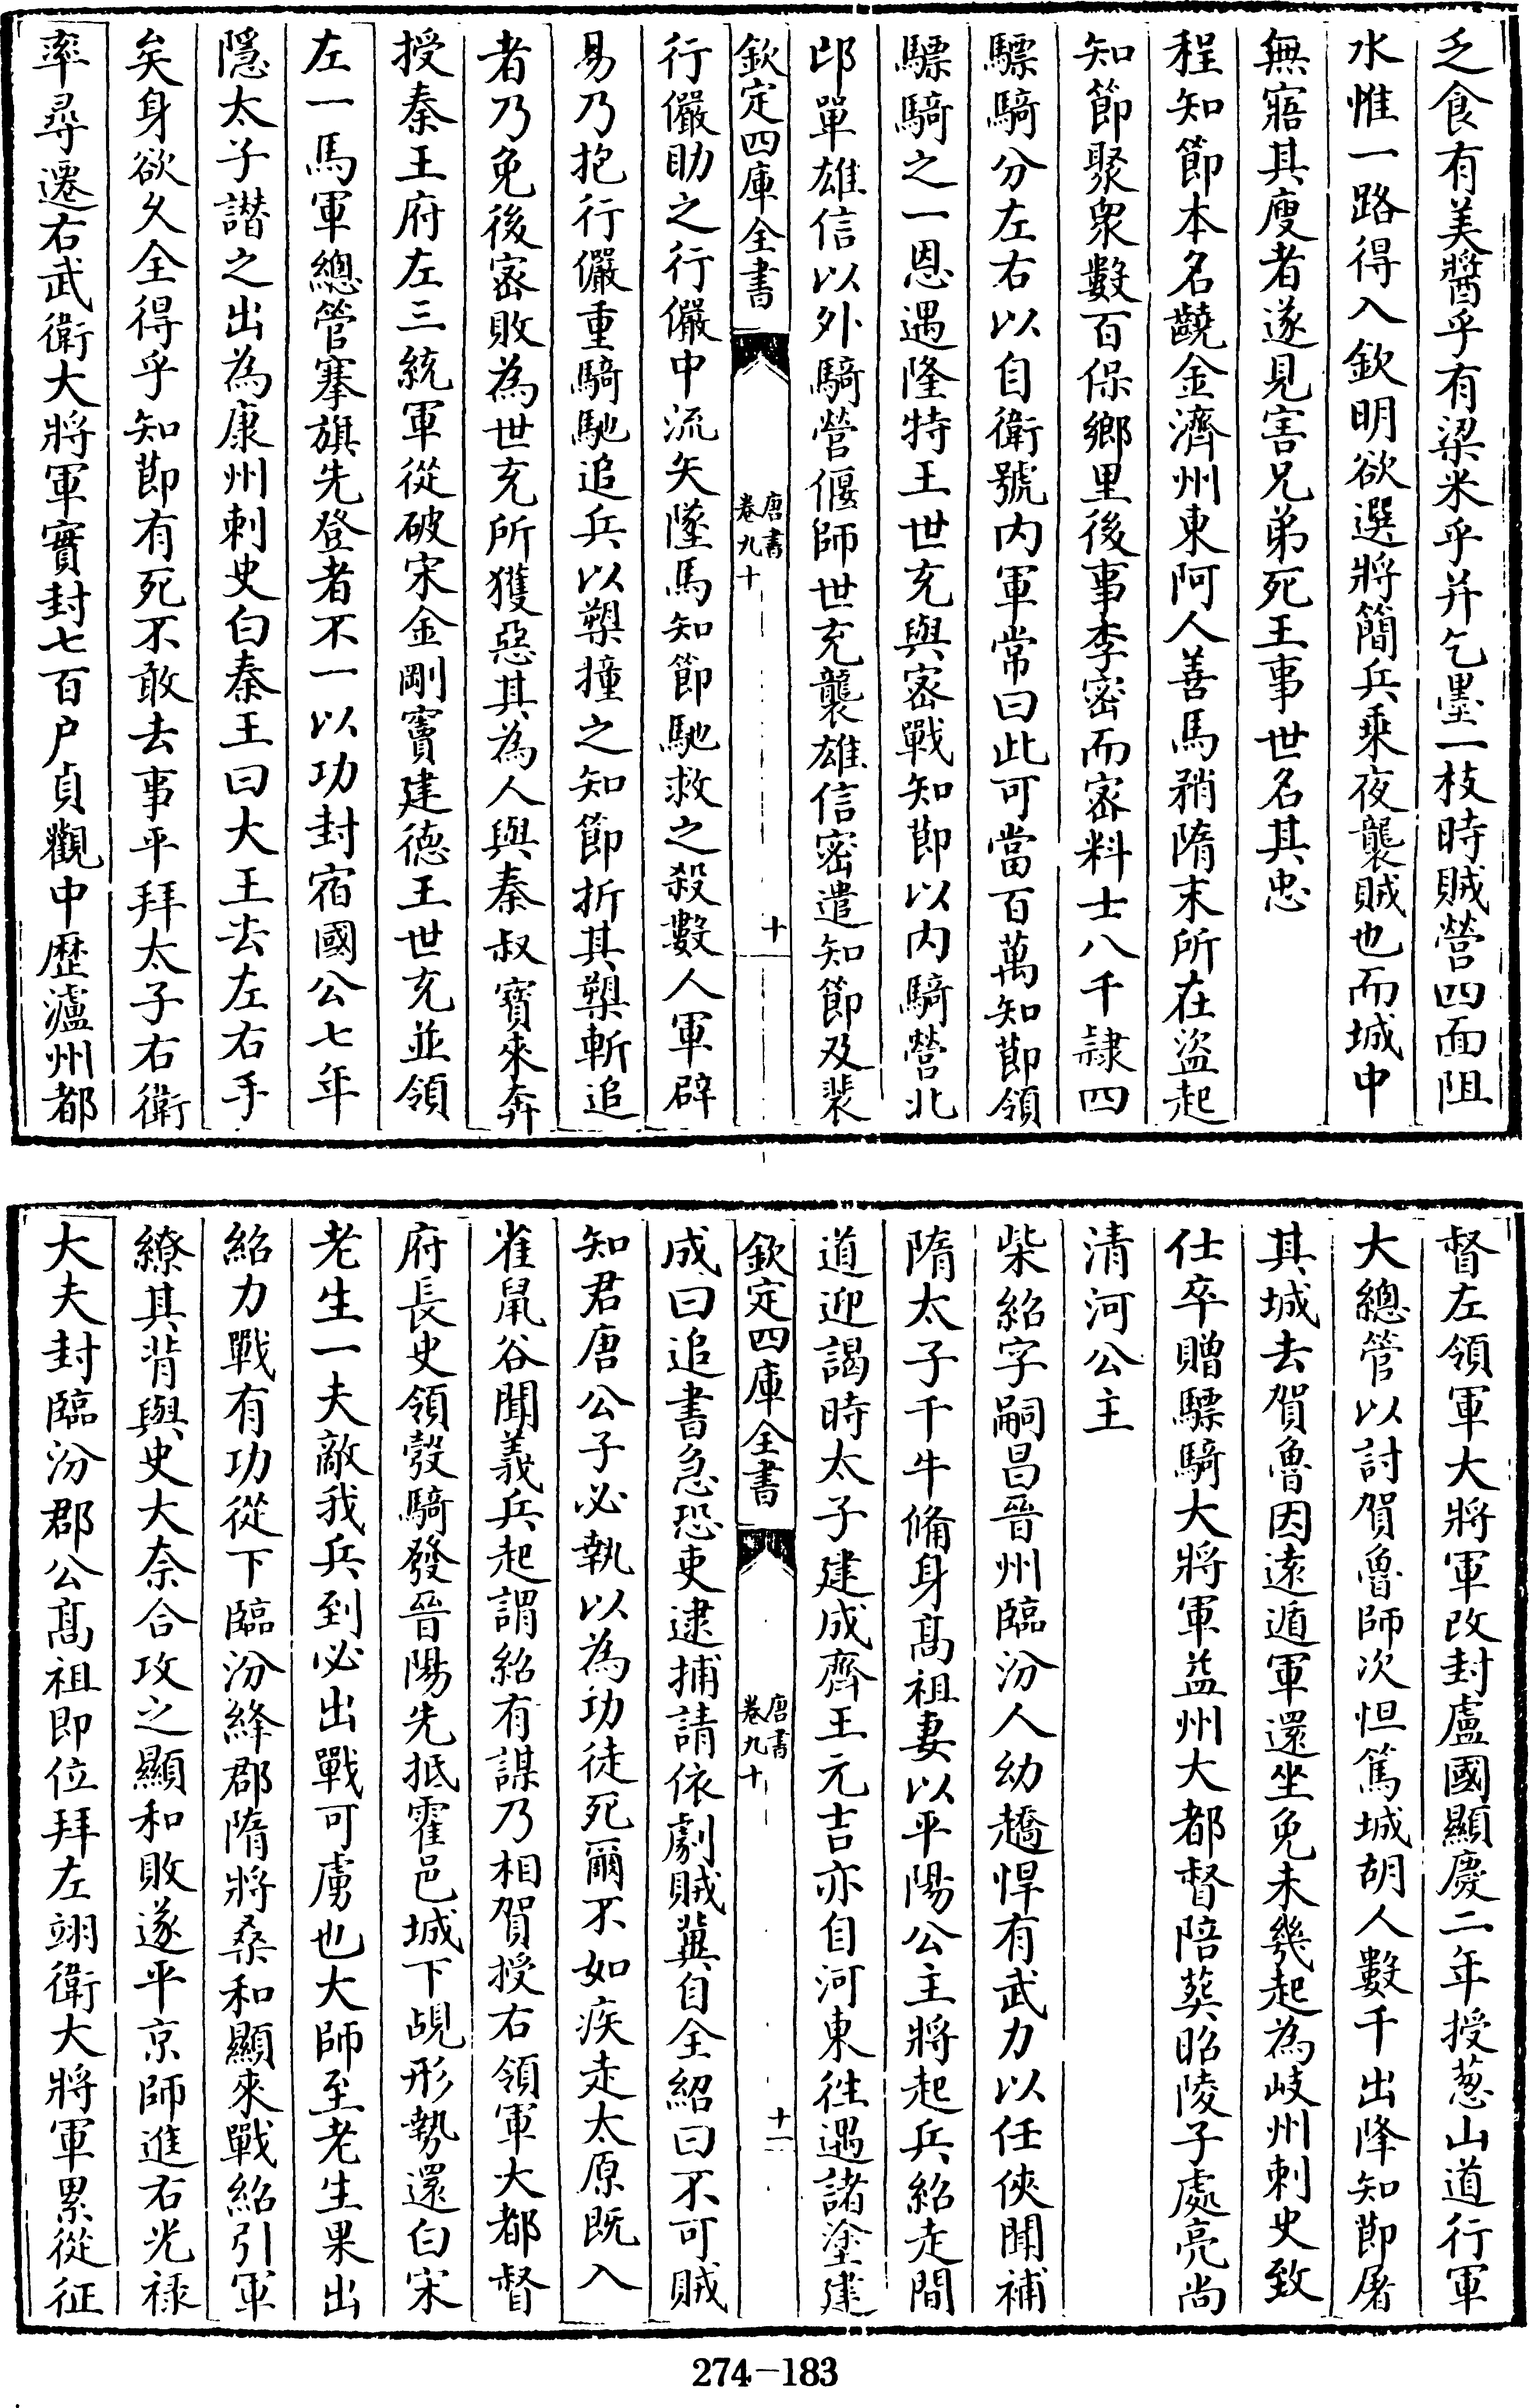 乏食有美醬乎有梁米乎并乞墨一枝時賊營四面阻
水惟一路得入欽明欲選將簡兵乘夜襲賊也而城中
無寤其廋者遂見害兄弟死王事世名其忠
程知節本名齩金濟州東阿人善馬矟隋末所在盜起
知節聚衆數百保鄉里後事李密而密料士八千隷四
驃騎分左右以自衛號内軍常曰此可當百萬知節領
驃騎之一恩遇隆特王世充與密戰知節以内騎營北
邙單雄信以外騎營偃師世充襲雄信密遣知節及裴
欽定四庫全書
唐書
卷九十
十
行儼助之行儼中流矢墜馬知節馳救之殺數人軍辟
易乃抱行儼重騎馳追兵以槊撞之知節折其槊斬追
者乃免後密敗為世充所獲惡其為人與秦叔寳來奔
授秦王府左三統軍從破宋金剛竇建德王世充並領
左一馬軍總管搴旗先登者不一以功封宿國公七年
隱太子譖之出為康州刺史白秦王曰大王去左右手
矣身欲久全得乎知節有死不敢去事平拜太子右衛
率尋遷右武衛大將軍實封七百户貞觀中歷瀘州都
督左領軍大將軍改封盧國顯慶二年授葱山道行軍
大總管以討賀魯師次怛篤城胡人數千出降知節屠
其城去賀魯因遠遁軍還坐免未幾起為岐州刺史致
仕卒贈驃騎大將軍益州大都督陪葬昭陵子處亮尚
清河公主
柴紹字嗣昌晉州臨汾人幼趫悍有武力以任俠聞補
隋太子千牛偹身髙祖妻以平陽公主將起兵紹走間
道迎謁時太子建成齊王元吉亦自河東往遇諸塗建
欽定四庫全書
唐書
卷九十
十一
成曰追書急恐吏逮捕請依劇賊冀自全紹曰不可賊
知君唐公子必執以為功徒死爾不如疾走太原既入
雀鼠谷聞義兵起謂紹有謀乃相賀授右領軍大都督
府長史領彀騎發晉陽先抵霍邑城下覘形勢還白宋
老生一夫敵我兵到必出戰可虜也大師至老生果出
紹力戰有功從下臨汾絳郡隋將桑和顯來戰紹引軍
繚其背與史大奈合攻之顯和敗遂平京師進右光祿
大夫封臨汾郡公髙祖即位拜左翊衛大將軍累從征
274-183